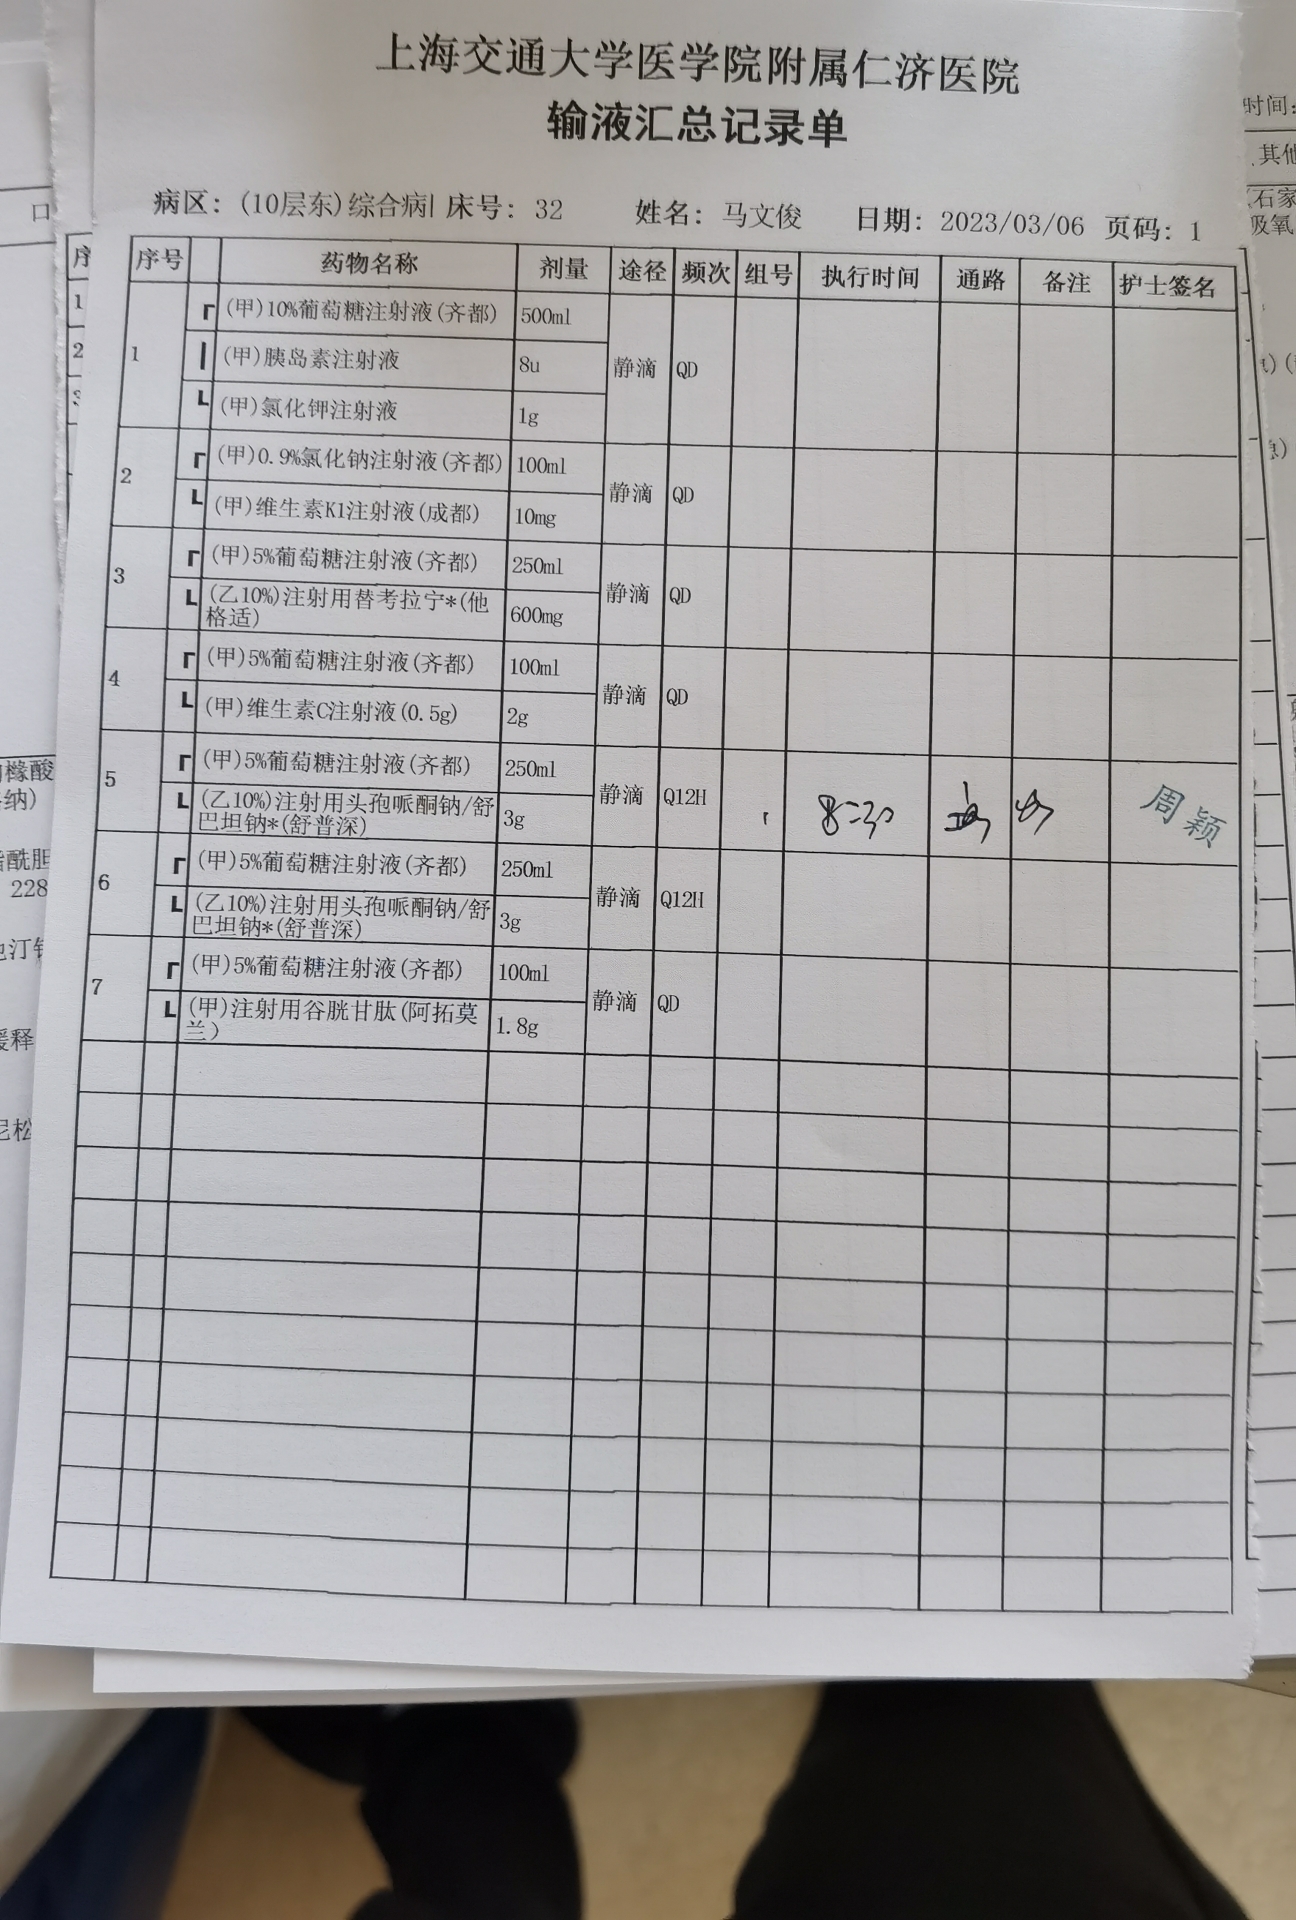 上海交通大学医学院附属仁济医院
输液汇总记录单
病区：(10层东)综合病 床号：32 姓名：马文俊 日期：2023/03/06 页码：1
序号 药物名称 剂量 途径 频次 组号 执行时间 通路 备注 护士签名
1 ┏ (甲)10%葡萄糖注射液(齐都) 500ml 静滴 QD
┃ (甲)胰岛素注射液 8u
┗ (甲)氯化钾注射液 1g
2 ┏ (甲)0.9%氯化钠注射液(齐都) 100ml 静滴 QD
┗ (甲)维生素K1注射液(成都) 10mg
3 ┏ (甲)5%葡萄糖注射液(齐都) 250ml 静滴 QD
┗ (乙10%)注射用替考拉宁*(他
格适) 600mg
4 ┏ (甲)5%葡萄糖注射液(齐都) 100ml 静滴 QD
┗ (甲)维生素C注射液(0.5g) 2g
5 ┏ (甲)5%葡萄糖注射液(齐都) 250ml 静滴 Q12H 8:30 周颖
┗ (乙10%)注射用头孢哌酮钠/舒
巴坦钠*(舒普深) 3g
6 ┏ (甲)5%葡萄糖注射液(齐都) 250ml 静滴 Q12H
┗ (乙10%)注射用头孢哌酮钠/舒
巴坦钠*(舒普深) 3g
7 ┏ (甲)5%葡萄糖注射液(齐都) 100ml 静滴 QD
┗ (甲)注射用谷胱甘肽(阿拓莫
兰) 1.8g
口
序
1
2
橼酸
纳)
酰胆
228
汀
缓释
尼松
时间:
其他
石家
吸氧